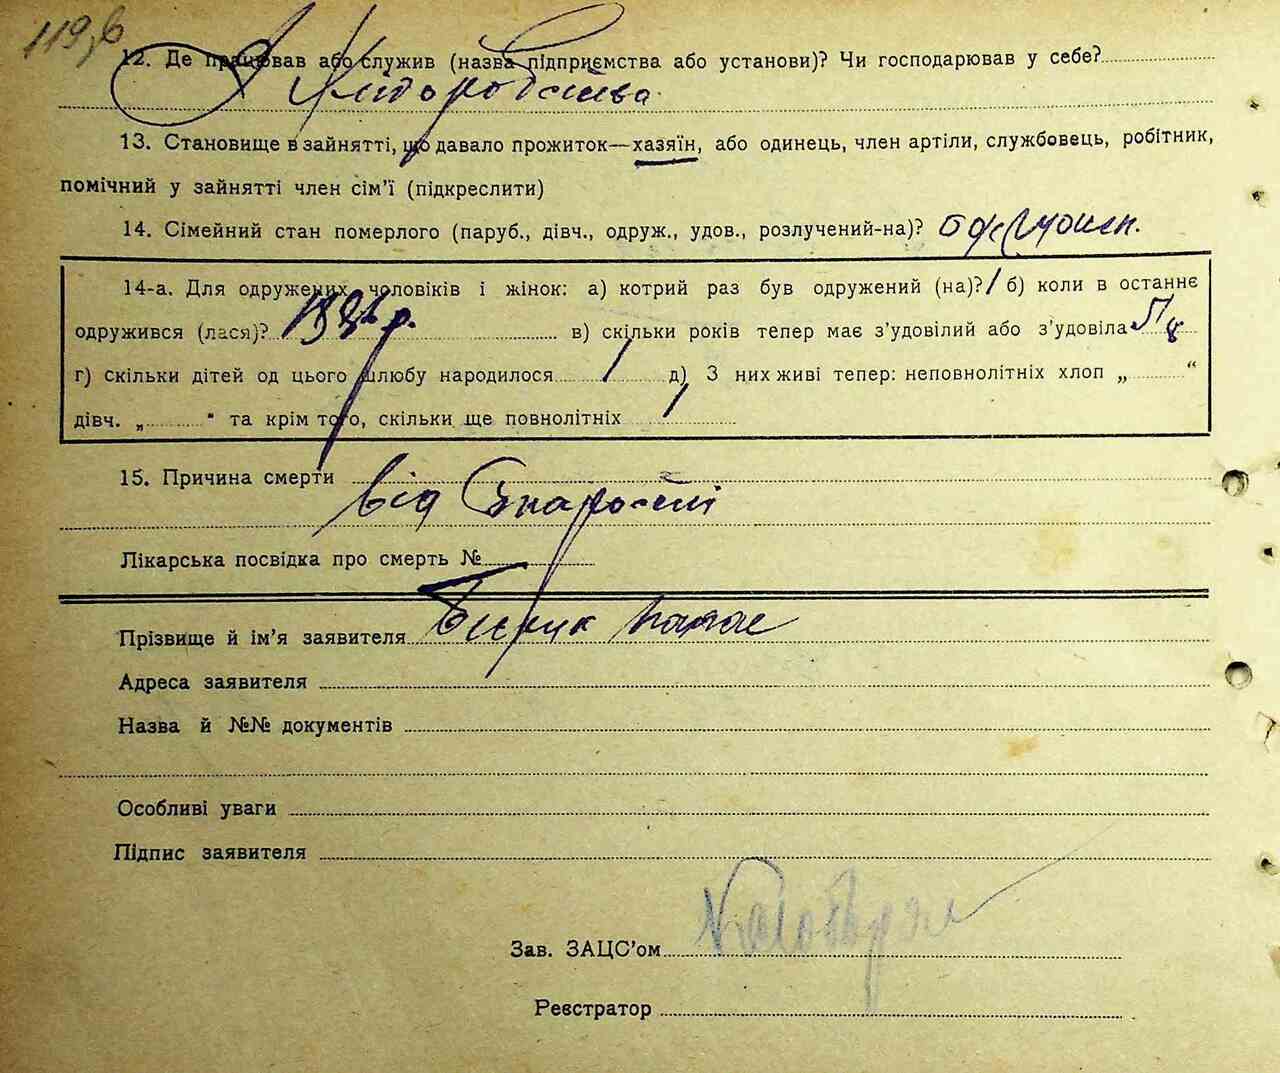 119,в
12. Де працював або служив (назва підприємства або установи)? Чи господарював у себе?
13. Становище в зайнятті, що давало прожиток—хазяїн, або одинець, член артіли, службовець, робітник,
помічний у зайнятті член сім’ї (підкреслити)
14. Сімейний стан померлого (паруб., дівч., одруж., удов., розлучений-на)?
14-а. Для одружених чоловіків і жінок: а) котрий раз був одружений (на)? 1 б) коли в останнє
одружився (лася)? р. в) скільки років тепер має з’удовілий або з’удовіла
г) скільки дітей од цього шлюбу народилося 1 д) З них живі тепер: неповнолітніх хлоп „ “
дівч. „ “ та крім того, скільки ще повнолітніх 1
15. Причина смерти від старости
Лікарська посвідка про смерть №
Прізвище й ім’я заявителя Панас
Адреса заявителя
Назва й №№ документів
Особливі уваги
Підпис заявителя
Зав. ЗАЦС’ом
Реєстратор